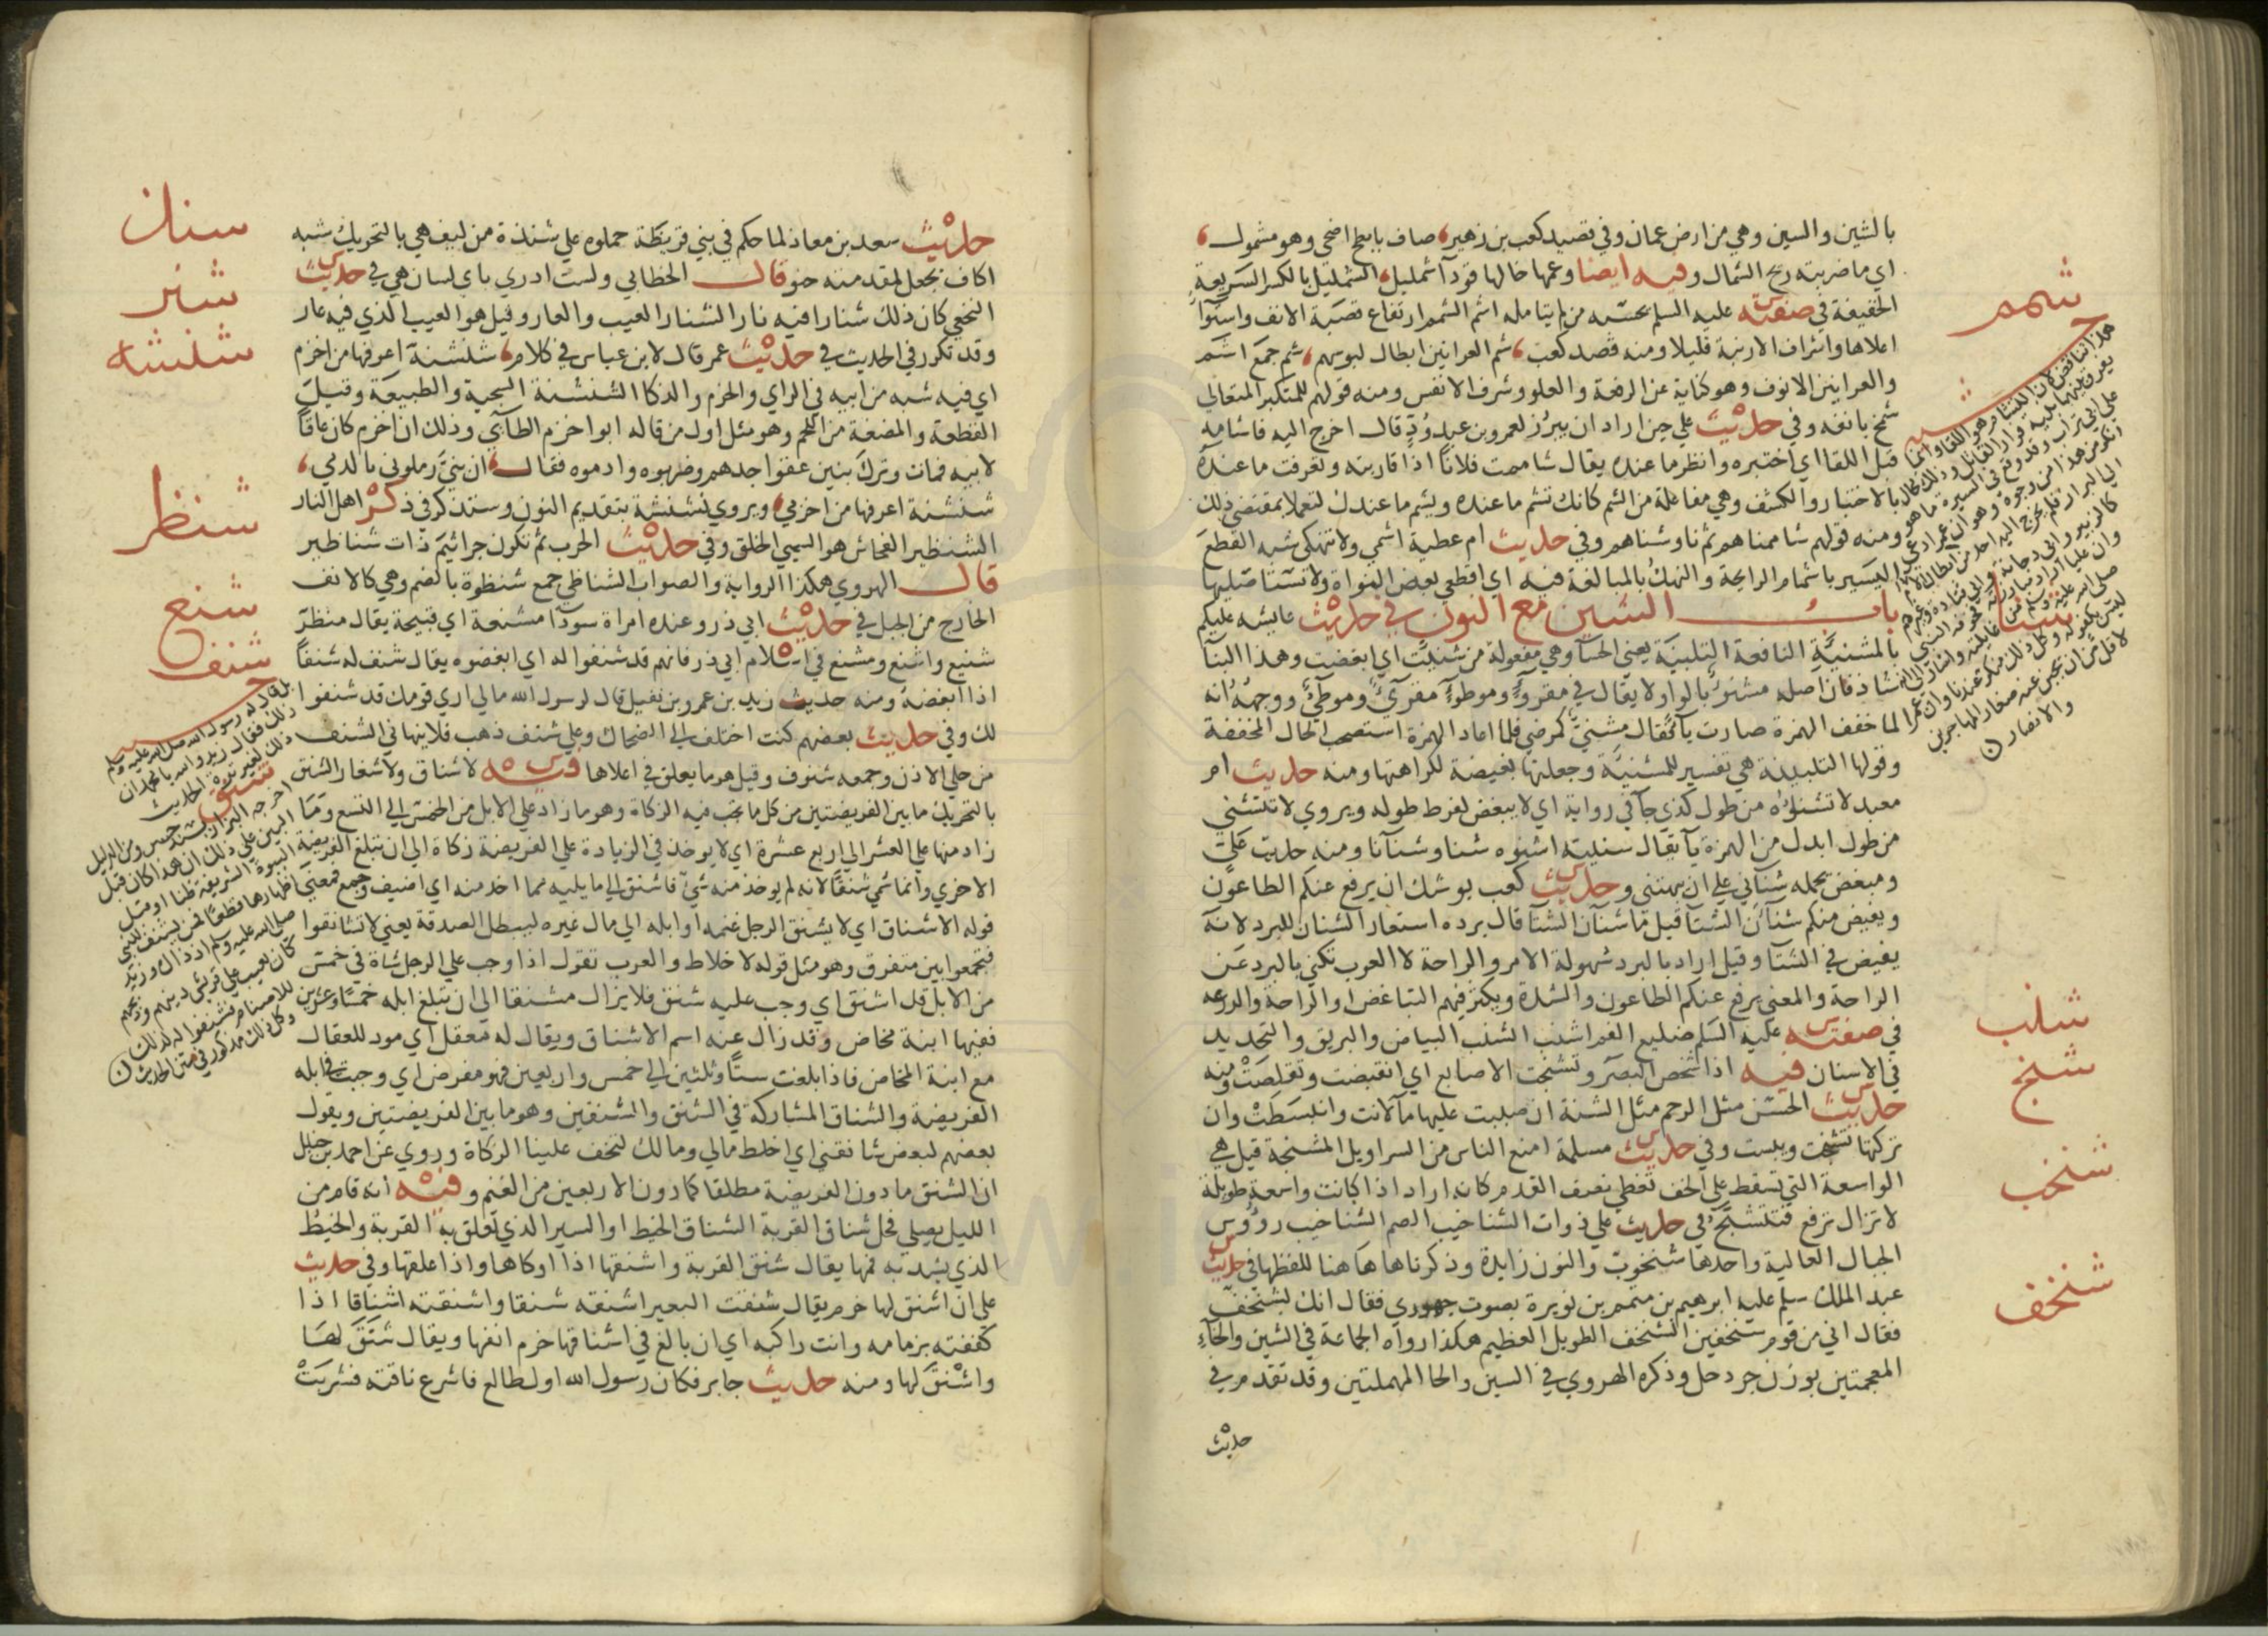 بالشين والسين وهي من ارض عمان وفي قصيد كعب بن زهير صاف بابطح اضحى وهو مشمول
اي ما ضربته ريح الشمال وفيه ايضا وعمها خالها قودآ شمليل الشمليل بالكسر السريعة
الخفيفة في صفته عليه السلم يحسبه من لم يتامله اشم الشمم ارتفاع قصبة الانف واستوآ
اعلاها واشراف الارنبة قليلا ومنه قصد كعب شم العرانين ابطال لبوسهم شم جمع اشم
والعرانين الانوف وهو كناية عن الرفعة والعلو وشرف الانفس ومنه قولهم للمتكبر المتعالي
شمخ بانفه وفي حديث علي حين اراد ان يبرز لعمرو بن عبد ود قال اخرج اليه فاشامه
قبل اللقا اي اختبره وانظر ما عنده يقال شاممت فلانا اذا قاربته وتعرفت ما عنده
بالاختبار والكشف وهي مفاعلة من الشم كانك تشم ما عنده ويشم ما عندك لتعملا بمقتضى ذلك
ومنه قولهم شاممناهم ثم ناوشناهم وفي حديث ام عطية اشمي ولا تنهكي شبه القطع
اليسير باشمام الرايحة والنهك بالمبالغة فيه اي اقطعي بعض النواة ولا تستاصليها
باب الشين مع النون في حديث عايشه عليكم
بالمشنيئة النافعة التلبينة يعني الحسآ وهي مفعولة من شنيت اي ابغضت وهذا البنآ
شاذ فان اصله مشنوء بالواو ولا يقال في مقروء وموطوء مقريء وموطيء ووجهه انه
لما خفف الهمزة صارت يآ فقال مشني كمرضي فلما اعاد الهمزة استصحب الحال المخففة
وقولها التلبينة هي تفسير للمشنية وجعلتها بغيضة لكراهتها ومنه حديث ام
معبد لا تشنؤه من طول كذي جآ في رواية اي لا يبغض لفرط طوله ويروي لا تتشنى
من طول ابدل من الهمزة يآ يقال شنيته اشنوه شنا وشنآنا ومنه حديث علي
ومبغض يحمله شنآني علي ان يبهتني وحديث كعب يوشك ان يرفع عنكم الطاعون
ويغيض منكم شنآن الشتآ قيل ما شنآن الشتآ قال برده استعار الشنان للبرد لانه
يغيض في الشتآ وقيل اراد بالبرد سهولة الامر والراحة لان العرب تكني بالبرد عن
الراحة والمعنى يرفع عنكم الطاعون والشدة ويكثر فيهم التباغض او الراحة والدعه
في صفته عليه السلم ضليع الفم اشنب الشنب البياض والبريق والتحديد
في الاسنان فيه اذا شخص البصر وتشنجت الاصابع اي انقبضت وتقلصت ومنه
حديث الحسن مثل الرحم مثل الشنة ان صببت عليها مآ لانت وانبسطت وان
تركتها تشنجت ويبست وفي حديث مسلمة امنع الناس من السراويل المشنجة قيل هي
الواسعة التي تسقط علي الخف تغطي نصف القدم كانه اراد اذا كانت واسعة طويلة
لا تزال ترفع فتتشنج في حديث علي ذوات الشناخيب الصم الشناخيب رؤوس
الجبال العالية واحدها شنخوب والنون زايدة وذكرناها هاهنا للفظها في حديث
عبد الملك سلم عليه ابرهيم بن متمم بن نويرة بصوت جهوري فقال انك لشنخف
فقال اني من قوم شنخفين الشنخف الطويل العظيم هكذا رواه الجماعة في الشين والخآء
المعجمتين بوزن جردحل وذكره الهروي في السين والحا المهملتين وقد تقدم في
حديث
شمم
شنا
شنب
شنج
شنخب
شنخف
والانصار
حديث سعد بن معاذ لما حكم في بني قريظة حملوه علي شنذة من ليف هي بالتحريك شبه
اكاف يجعل لمقدمته حنو قال الخطابي ولست ادري باي لسان هي في حديث
النخعي كان ذلك شنارا فيه نار الشنار العيب والعار وقيل هو العيب الذي فيه عار
وقد تكرر في الحديث في حديث عمر قال لابن عباس في كلام شنشنة اعرفها من اخزم
اي فيه شبه من ابيه في الراي والحزم والذكا الشنشنة السجية والطبيعة وقيل
القطعة والمضغة من اللحم وهو مثل اول من قاله ابو اخزم الطآئي وذلك ان اخزم كان عاقا
لابيه فمات وترك بنين عقوا جدهم وضربوه وادموه فقال ان بني رملوني بالدمي
شنشنة اعرفها من اخزمي ويروي نشنشة بتقديم النون وستذكر في ذكر اهل النار
الشنظير الفحاش هو السيي الخلق وفي حديث الحرب ثم تكون جراثيم ذات شناظير
قال الهروي هكذا الرواية والصواب الشناظي جمع شنظوة بالضم وهي كالانف
الخارج من الجبل في حديث ابي ذر وعنده امراة سودآ مشنعة اي قبيحة يقال منظر
شنيع واشنع ومشنع في اسلام ابي ذر فانهم قد شنفوا له اي ابغضوه يقال شنف له شنفا
اذا ابغضه ومنه حديث زيد بن عمرو بن نفيل قال لرسول الله مالي اري قومك قد شنفوا
لك وفي حديث بعضهم كنت اختلف الي الضحاك وعلي شنف ذهب فلا ينهاني الشنف
من حلي الاذن وجمعه شنوف وقيل هو ما يعلق في اعلاها وفيه لا شناق ولا شغار الشنق
بالتحريك ما بين الفريضتين من كل ما تجب فيه الزكاة وهو ما زاد علي الابل من الخمس الي التسع وما
زاد منها علي العشر الي اربع عشرة اي لا يوخذ في الزيادة علي الفريضة زكاة الي ان تبلغ الفريضة
الاخري وانما سمي شنقا لانه لم يوخذ منه شيء فاشنق الي ما يليه مما اخذ منه اي اضيف وجمع فمعنى
قوله لا شناق اي لا يشنق الرجل غنمه او ابله الي مال غيره ليبطل الصدقة يعني لا تشانقوا
فتجمعوا بين متفرق وهو مثل قوله لا خلاط والعرب تقول اذا وجب علي الرجل شاة في خمس
من الابل قد اشنق اي وجب عليه شنق فلا يزال مشنقا الي ان تبلغ ابله خمسا وعشرين
ففيها ابنة مخاض وقد زال عنه اسم الاشناق ويقال له معقل اي مود للعقال
مع ابنة المخاض فاذا بلغت ستا وثلثين الي خمس واربعين فهو مفرض اي وجبت في ابله
الفريضة والشناق المشاركة في الشنق والشنقين وهو ما بين الفريضتين ويقول
بعضهم لبعض شانقني اي اخلط مالي ومالك لتخف علينا الزكاة وروي عن احمد بن حنبل
ان الشنق ما دون الفريضة مطلقا كما دون الاربعين من الغنم وفيه انه قام من
الليل يصلي فحل شناق القربة الشناق الخيط او السير الذي تعلق به القربة والخيط
الذي يشد به فمها يقال شنق القربة واشنقها اذا اوكاها واذا علقها وفي حديث
علي ان اشنق لها خرم يقال شنقت البعير اشنقه شنقا واشنقته اشناقا اذا
كففته بزمامه وانت راكبه اي ان بالغ في اشناقها خرم انفها ويقال شنق لها
واشنق لها ومنه حديث جابر فكان رسول الله اول طالع فاشرع ناقته فشربت
شنذ
شنر
شنشنه
شنظر
شنع
شنف
شنق